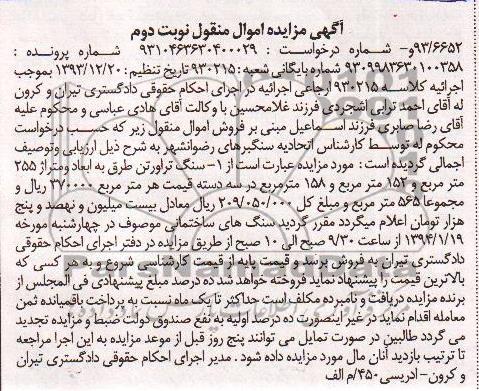 آگهی مزایده اموال منقول نوبت دوم
۹۳/۶۶۵۲و- شماره درخواست : ۹۳۱۰۴۶۳۶۳۰۴۰۰۰۲۹ شماره پرونده :
۹۳۰۹۹۸۳۶۳۰۱۰۰۳۵۸ شماره بایگانی شعبه : ۹۳۰۲۱۵ تاریخ تنظیم : ۱۳۹۳/۱۲/۲۰ بموجب
اجرائیه کلاسه ۹۳۰۲۱۵ ارجاعی اجرائیه در اجرای احکام حقوقی دادگستری تیران و کرون
له آقای احمد ترابی اشجردی فرزند غلامحسین با وکالت آقای هادی عباسی و محکوم علیه
آقای رضا صابری فرزند اسماعیل مبنی بر فروش اموال منقول زیر که حسب درخواست
محکوم له توسط کارشناس اتحادیه سنگبرهای رضوانشهر به شرح ذیل ارزیابی وتوصیف
اجمالی گردیده است : مورد مزایده عبارت است از ۱- سنگ تراورتن طرق به ابعاد ومتراژ ۲۵۵
متر مربع و ۱۵۲ متر مربع و ۱۵۸ مترمربع در سه دسته قیمت هر متر مربع ۳۷۰۰۰۰ ریال و
مجموعا ۵۶۵ متر مربع و مبلغ کل ۲۰۹/۰۵۰/۰۰۰ ریال معادل بیست میلیون و نهصد و پنج
هزار تومان اعلام میگردد مقرر گردید سنگ های ساختمانی موصوف در چهارشنبه مورخه
۱۳۹۴/۱/۱۹ از ساعت ۹/۳۰ صبح الی ۱۰ صبح از طریق مزایده در دفتر اجرای احکام حقوقی
دادگستری تیران به فروش برسد و قیمت پایه از قیمت کارشناسی شروع و به هر کسی که
بالاترین قیمت را پیشنهاد نماید فروخته خواهد شد ده درصد مبلغ پیشنهادی فی المجلس از
برنده مزایده دریافت و نامبرده مکلف است حداکثر تا یک ماه نسبت به پرداخت باقیمانده ثمن
معامله اقدام نماید در غیر اینصورت ده درصد اولیه به نفع صندوق دولت ضبط و مزایده تجدید
می گردد طالبین در صورت تمایل می توانند پنج روز قبل از موعد مزایده به این اجرا مراجعه
تا ترتیب بازدید آنان مال مورد مزایده داده شود . مدیر اجرای احکام حقوقی دادگستری تیران
و کرون- ادریسی ۴۵۰/م الف